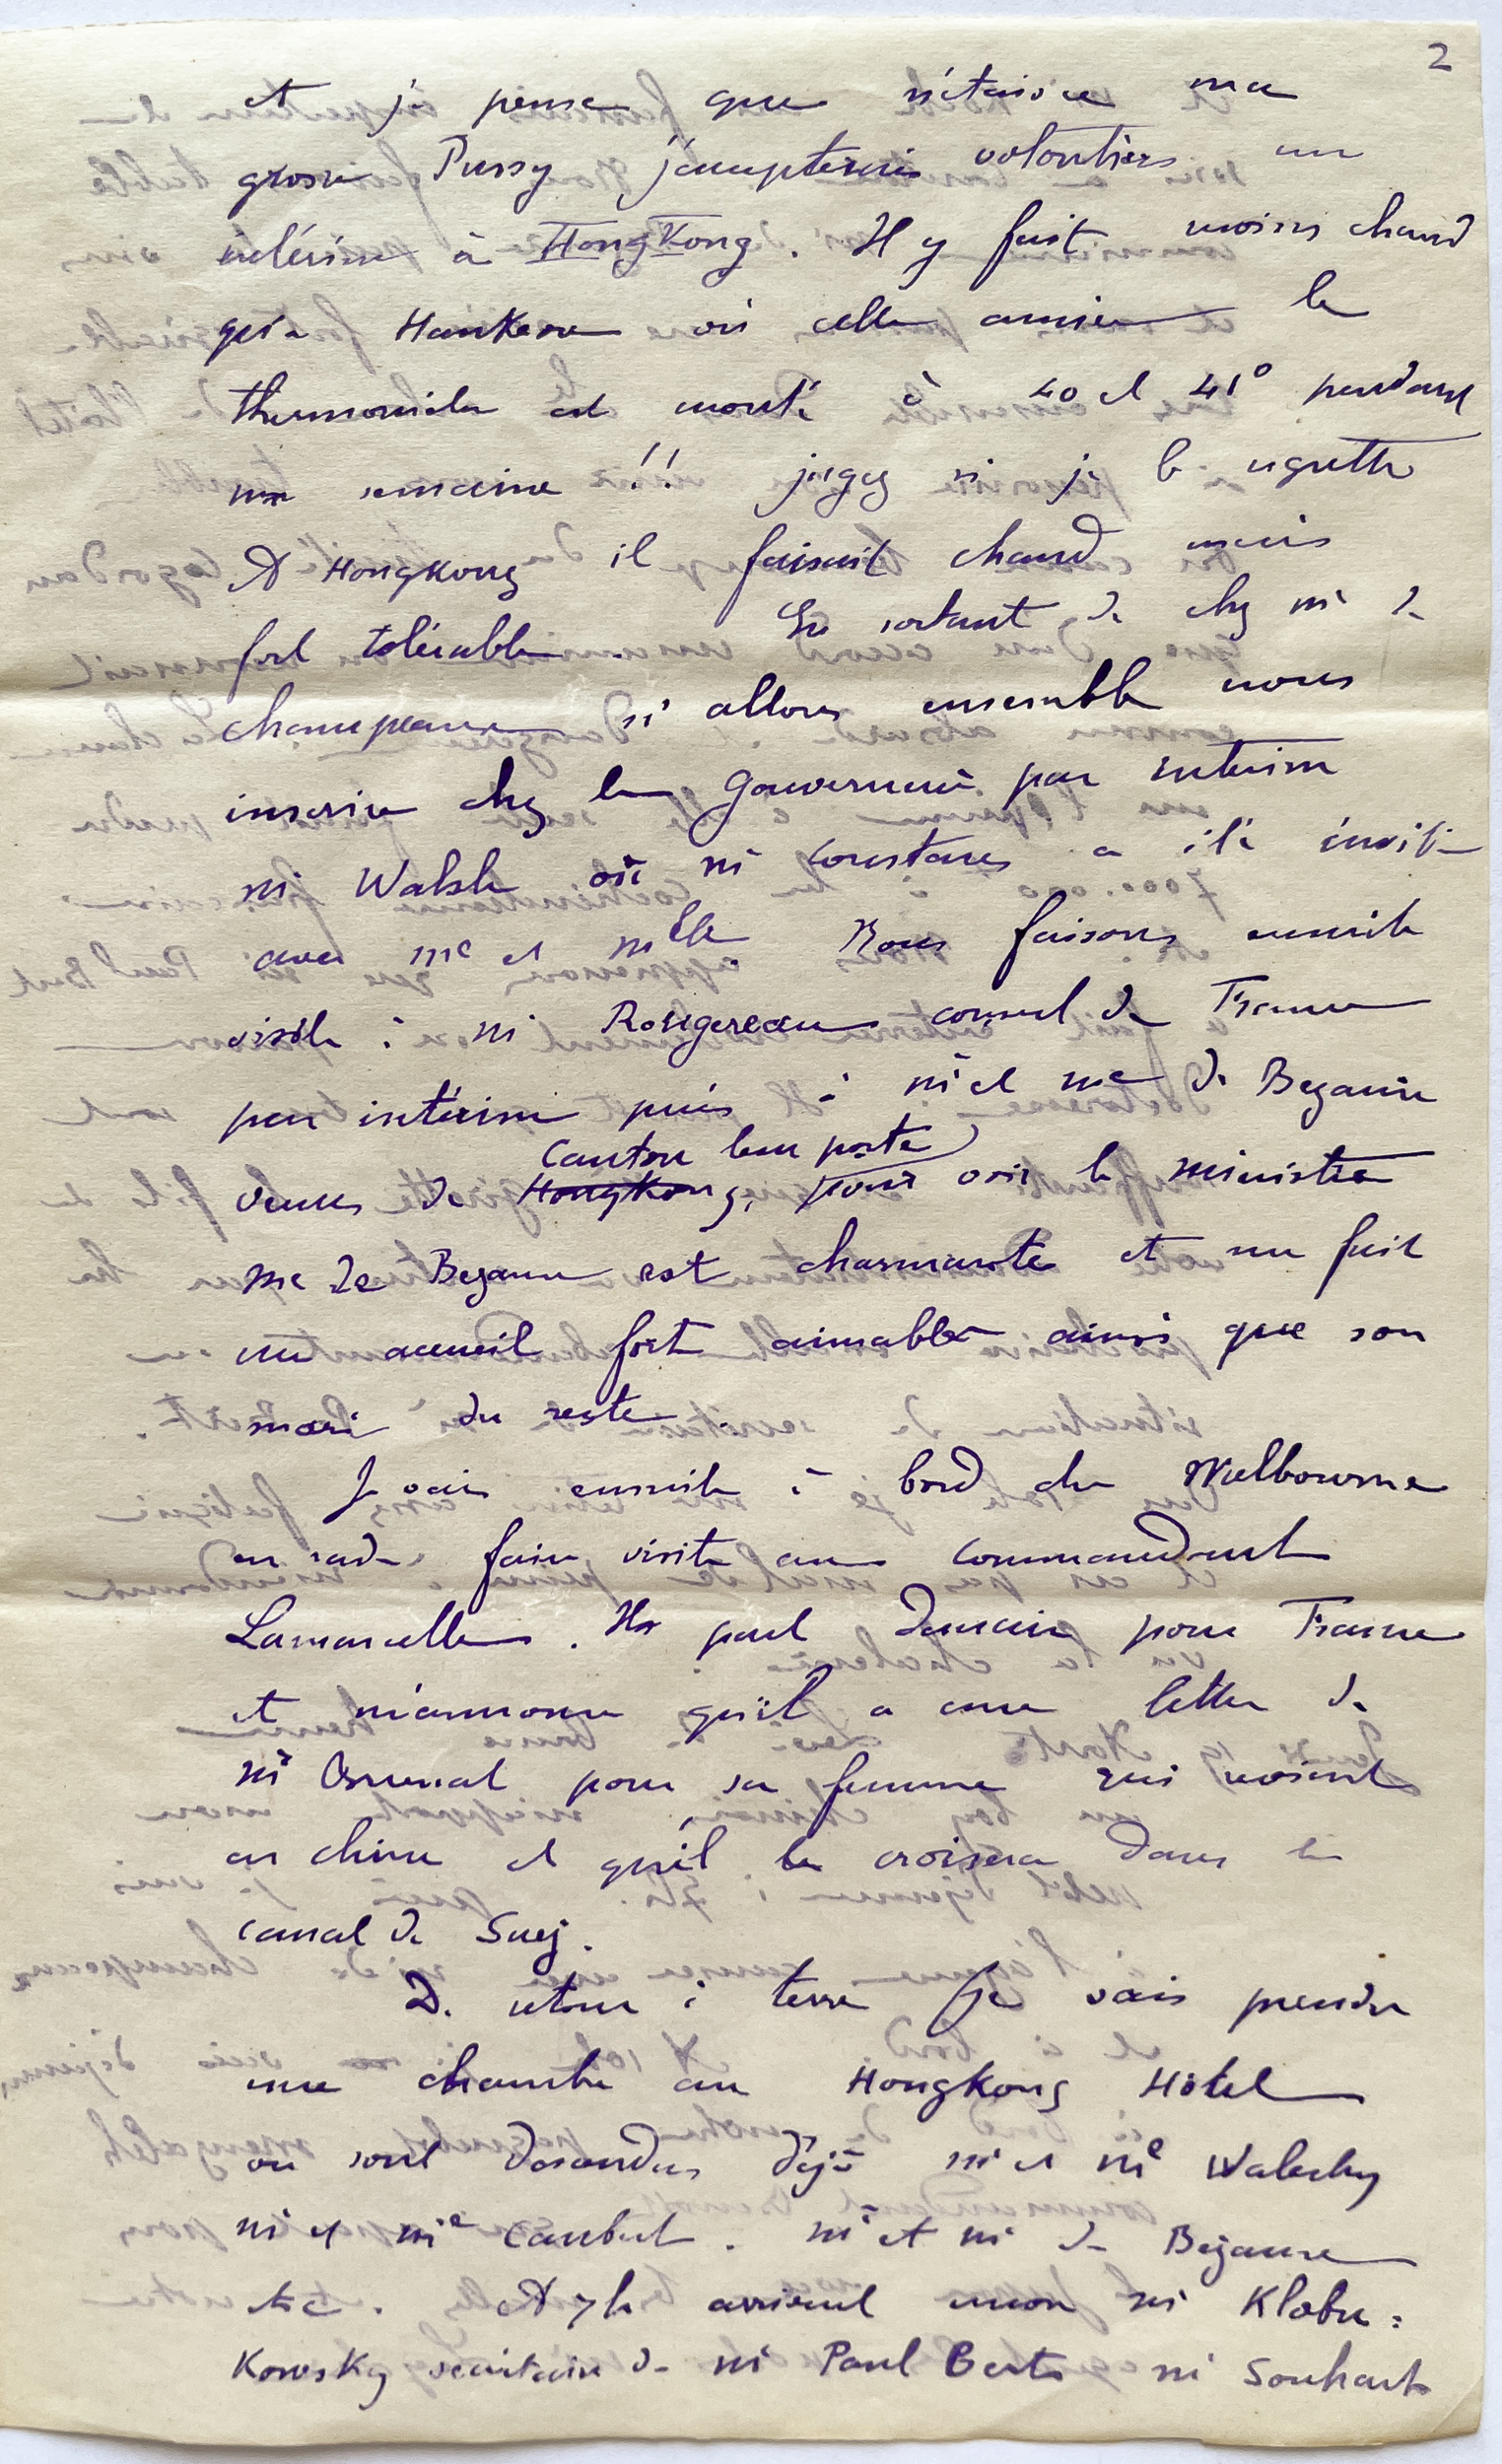 2
et je pense que n'étaisce ma
grosse Pussy j'accepterais volontiers un
intérim à HongKong. Il y fait moins chaud
qu'a Hankeou où cette année le
thermomètre est monté à 40 et 41° pendant
une semaine !! jugez si je le regrette
A HongKong il faisait chaud mais
fort tolérable. En sortant de chez mr de
Champeaux ns allons ensemble nous
inscrire chez le Gouverneur par interim
mr Walsh où mr Constans a été invité
avec me et melle. Nous faisons ensuite
visite à mr Rougereau consul de France
par intérim puis à mr et me de Bezaure
Canton leur poste
venus de HongKong, pour voir le ministre
me de Bezaure est charmante et me fait
un accueil fort aimable ainsi que son
mari du reste.
Je vais ensuite à bord du Melbourne
en rade faire visite au commandant
Lamarcelle. Il part demain pour France
et m'annonce qu'il a une lettre de
mr pour sa femme qui revient
en Chine et qu'il la croisera dans le
canal de Suez.
De retour à terre je vais prendre
une chambre au HongKong Hôtel
où sont descendus déjà mr et me Walesky
mr et me . mr et me de Bezaure
etc. A 7h arrivent mon mr Klobu=
Kowsky secrétaire de mr Paul Bert mr Souhart